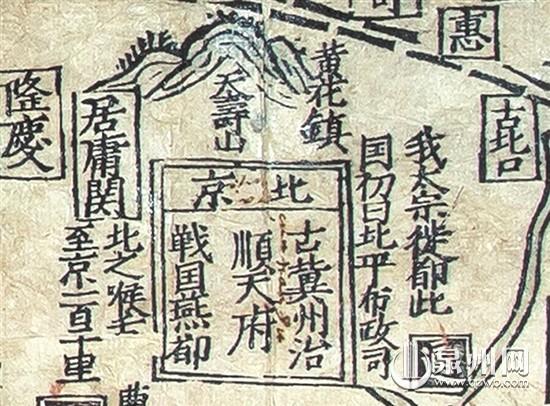 惠
古北口
我太宗徙都此
国初曰北平布政司
黄花鎮
天壽山
北京
古冀州治
順天府
戦国燕都
居庸関
北之喉
至京百十里
隆慶
泉州网
www.qzwb.com